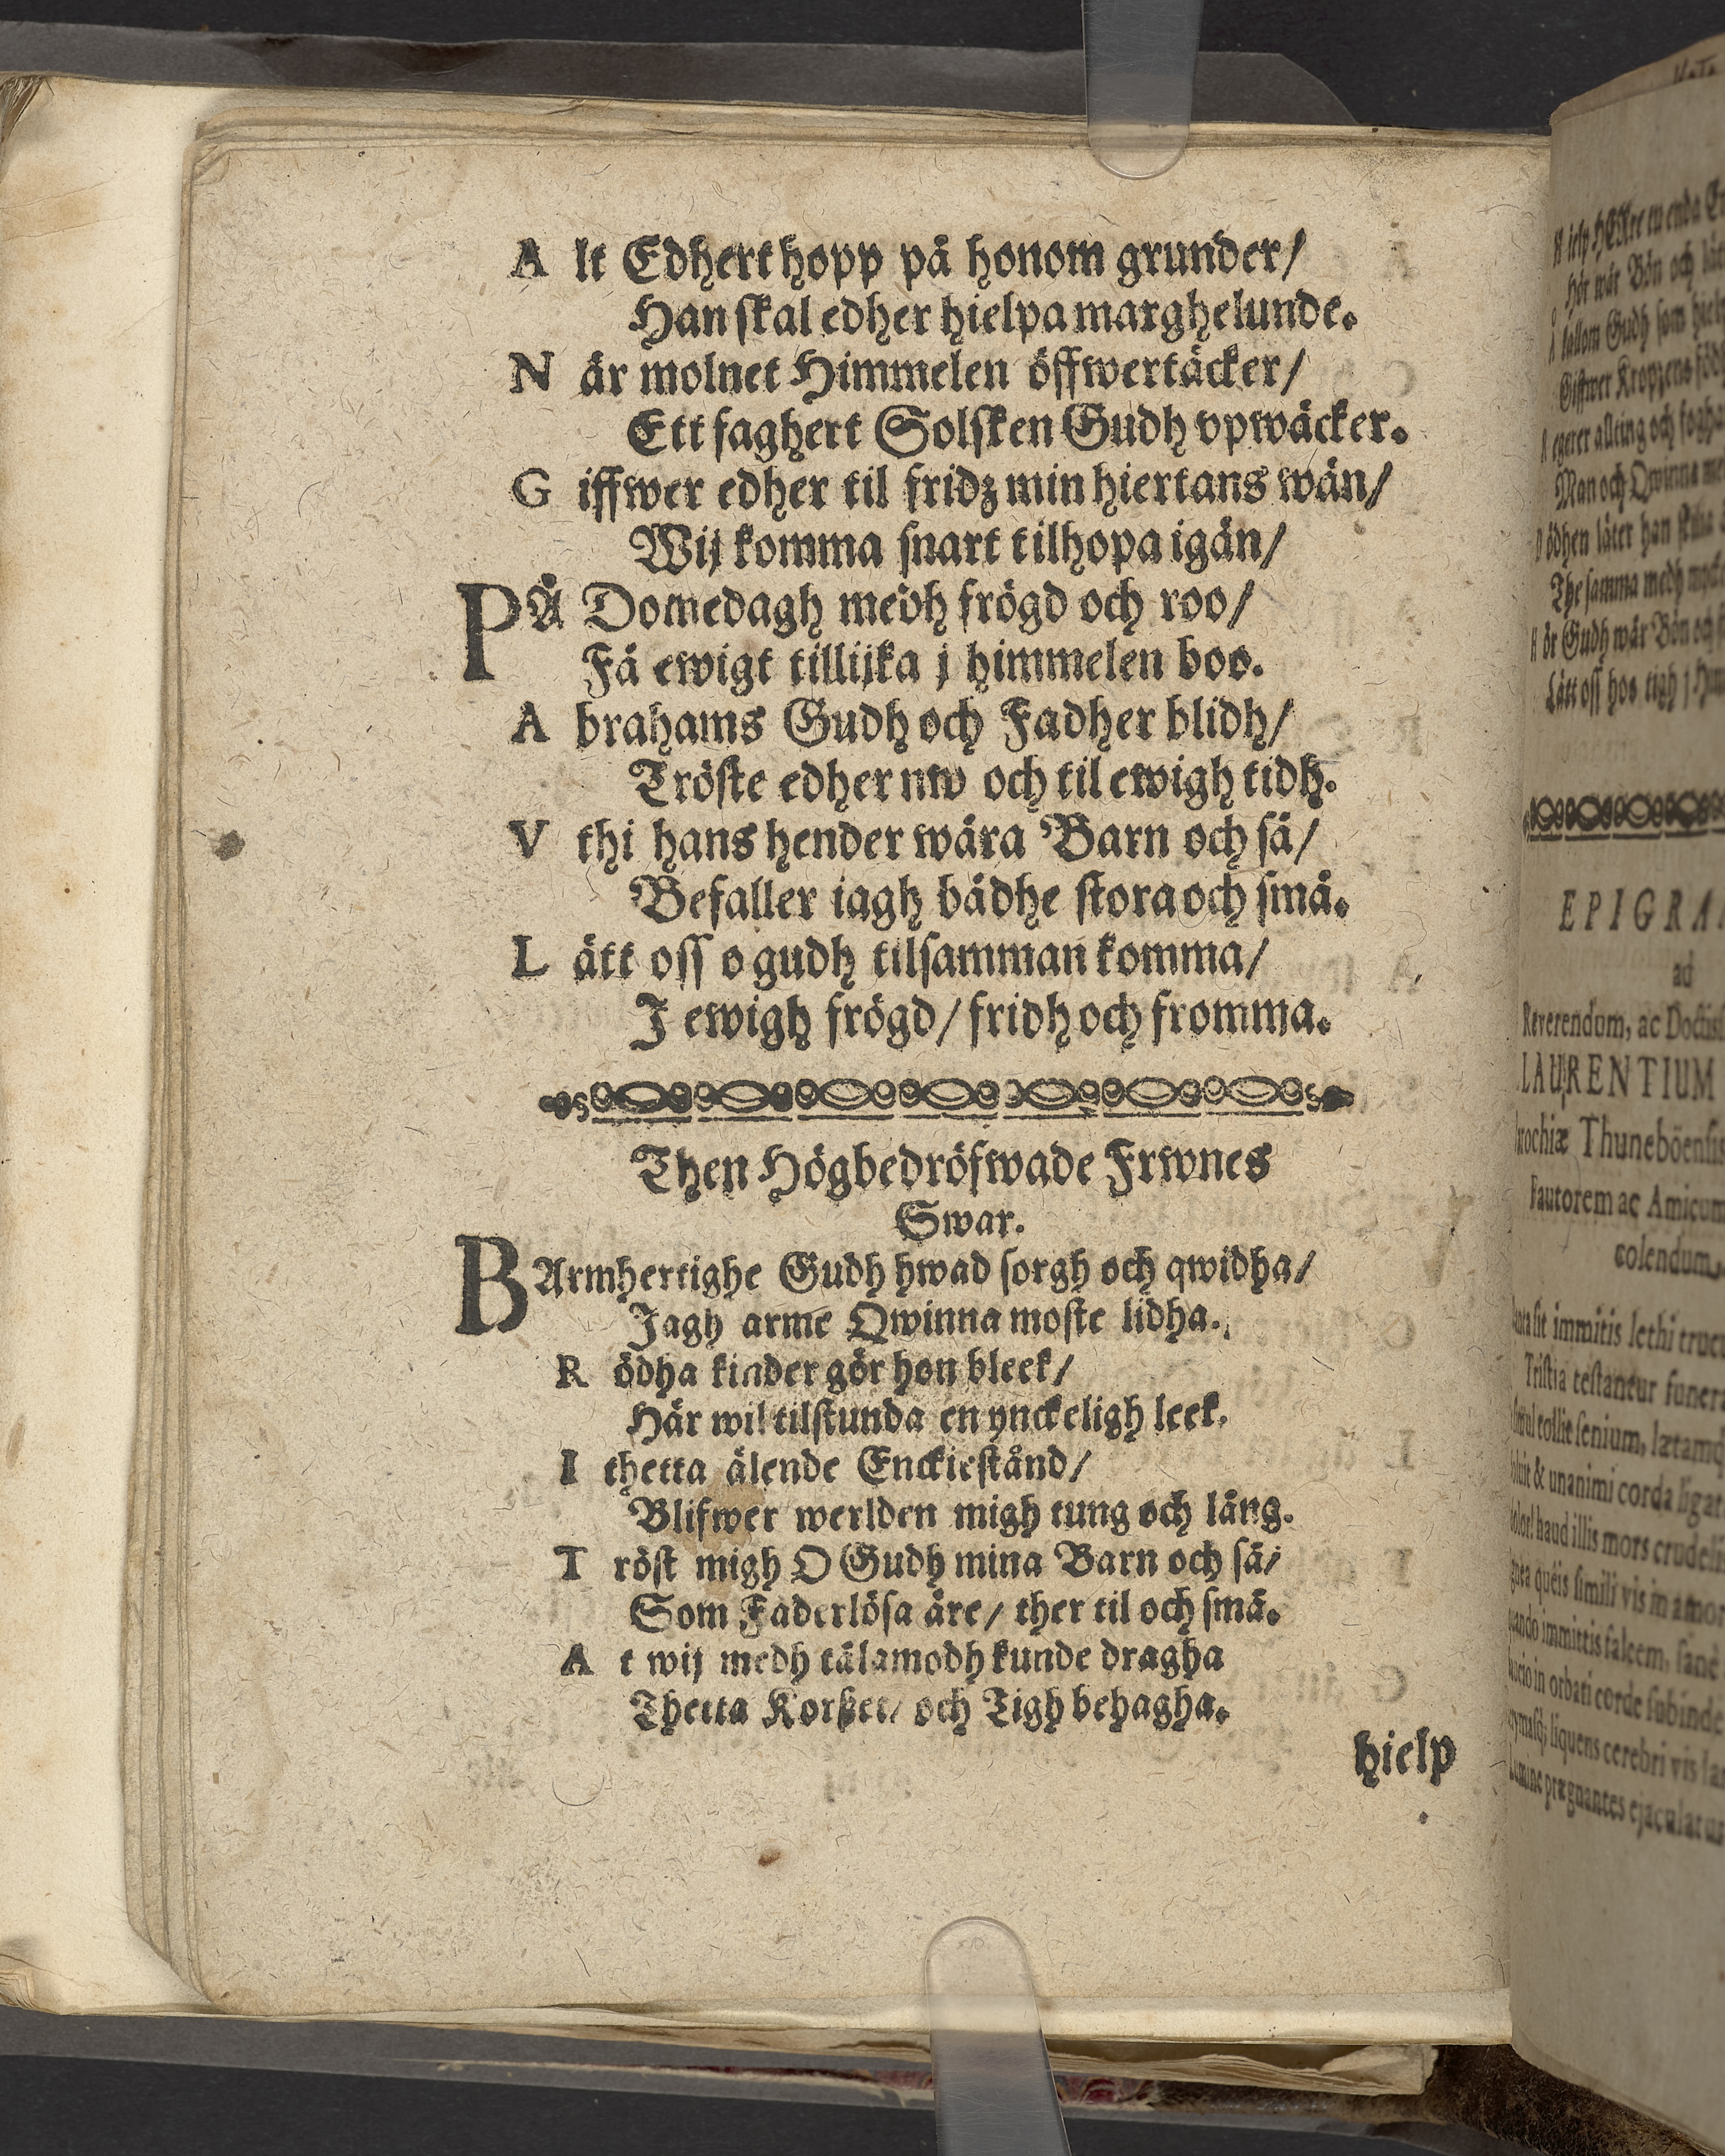 A lt Edhert hopp på honom grunder/
Han skal edher hielpa marghelunde.
N är molnet Himmelen öffwertäcker/
Ett faghert Solsken Gudh vpwäcker.
G iffwer edher til fridz min hiertans wän/
Wij komma snart tilhopa igän/
PÅ Domedagh medh frögd och roo/
Få ewigt tillijka j himmelen boo.
A brahams Gudh och Fadher blidh/
Tröste edher nw och til ewigh tidh.
V thi hans hender wåra Barn och så/
Befaller iagh bådhe stora och små.
L ått oss o gudh tilsamman komma/
J ewigh frögd/ fridh och fromma.
Then Högbedröfwade Frwnes
Swar.
BArmhertighe Gudh hwad sorgh och qwidha/
Jagh arme Qwinna moste lidha.
R ödha kinder gör hon bleek/
Här wil tilstunda en ynckeligh leek.
I thetta älende Enckiestånd/
Blifwer werlden migh tung och lång.
T röst migh O Gudh mina Barn och så/
Som Faderlösa äre/ ther til och små.
A t wij medh tålamodh kunde dragha
Thetta Korßet/ och Tigh behagha.
hielp
EPIGRA
ad
Reverendum, ac
LAURENTIUM
Thuneböensis
Fautorem ac Amicum
colendum,
sit immitis lethi
Tristia testantur
tollit senium,
& unanimi corda
haud illis mors
queis simili vis in
immitis falcem,
in orbati corde subinde
liquens cerebri vis
prægnantes